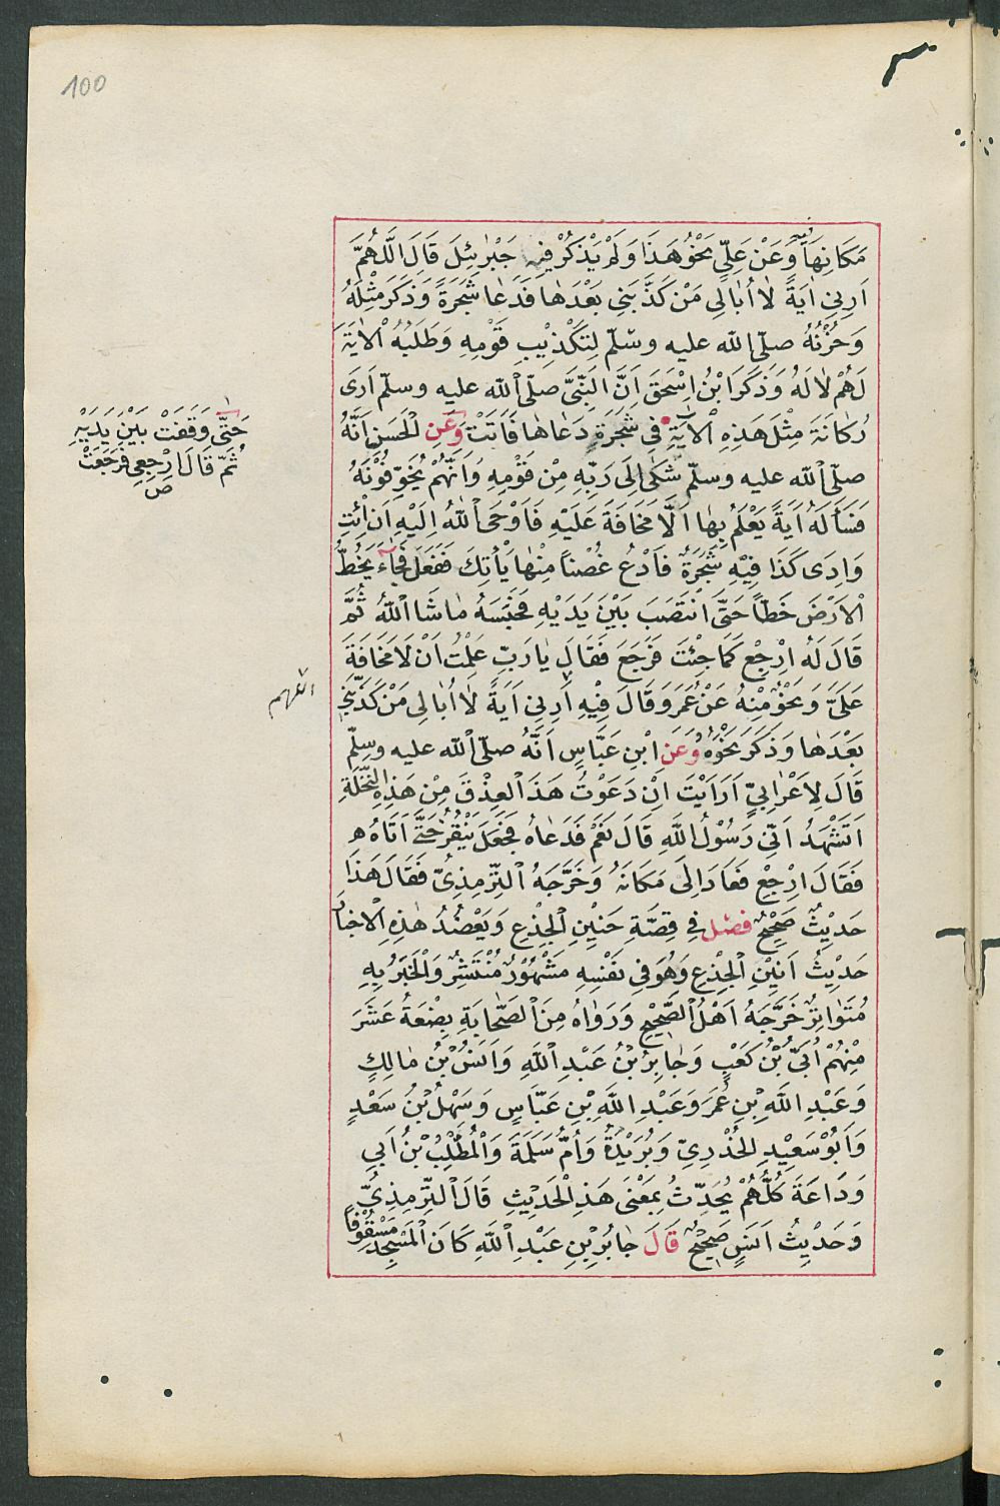 100
مَكَانِهَا وَعَنْ عَلِيٍّ نَحْوُ هَذَا وَلَمْ يَذْكُرْ فِيهِ جَبْرٰئِلَ قَالَ اللّٰهُمَّ
اَرِنِي اٰيَةً لٰا اُبٰالِي مَنْ كَذَّبَنِي بَعْدَهٰا فَدَعٰا شَجَرَةً وَذَكَرَ مِثْلَهُ
وَحُزْنُهُ صلّى الله عليه وسلّم لِتَكْذِيْبِ قَوْمِهِ وَطَلَبُهُ الْاٰيَةَ
لَهُمْ لٰا لَهُ وَذَكَرَ ابْنُ اِسْحٰقَ اَنَّ النَّبِيَّ صلّى الله عليه وسلّم اَرَى
رُكٰانَةَ مِثْلَ هَذِهِ الْاٰيَةِ فِي شَجَرَةٍ دَعٰاهٰا فَاَتَتْ وَعَنِ الْحَسَنِ اَنَّهُ
صلّى الله عليه وسلّم شَكٰى اِلَى رَبِّهِ مِنْ قَوْمِهِ وَاَنَّهُمْ يُخَوِّفُوْنَهُ
فَسَاَلَهُ اٰيَةً يَعْلَمُ بِهٰا اَلَّا مَخَافَةَ عَلَيْهِ فَاَوْحَى اللّٰهُ اِلَيْهِ اَنِ ائْتِ
وَادِىَ كَذَا فِيْهِ شَجَرَةٌ فَادْعُ غُصْنًا مِنْهٰا يَأْتِكَ فَفَعَلَ فَجَاءَ يَخُطُّ
الْاَرْضَ خَطًّا حَتَّى انْتَصَبَ بَيْنَ يَدَيْهِ فَحَبَسَهُ مٰا شَا اللّٰهُ ثُمَّ
قَالَ لَهُ اِرْجِعْ كَمَا جِئْتَ فَرَجَعَ فَقَالَ يٰا رَبِّ عَلِمْتُ اَنْ لَا مَخَافَةَ
عَلَىَّ وَنَحْوٌ مِنْهُ عَنْ عُمَرَ وَقَالَ فِيْهِ اَرِنِي اٰيَةً لٰا اُبٰالِى مَنْ كَذَّبَنِي
بَعْدَهٰا وَذَكَرَ نَحْوَهُ وَعَنِ ابْنِ عَبَّاسٍ اَنَّهُ صلّى الله عليه وسلّم
قَالَ لِاَعْرٰابِيٍّ اَرَاَيْتَ اِنْ دَعَوْتُ هَذَا الْعِذْقَ مِنْ هَذِهِ النَّخْلَةِ
اَتَشْهَدُ اَنِّي رَسُوْلُ اللّٰهِ قَالَ نَعَمْ فَدَعٰاهُ فَجَعَلَ يَنْقُزُ حَتَّى اَتَاهُ ه
فَقَالَ اِرْجِعْ فَعَادَ اِلَى مَكَانَهُ وَخَرَّجَهُ التِّرْمِذِىُّ فَقَالَ هَذَا
حَدِيْثٌ صَحِيْحٌ فصل فِي قِصَّةِ حَنِيْنِ الْجِذْعِ وَيَعْضُدُ هٰذِهِ الْاَخْبٰارَ
حَدِيْثُ اَنِيْنِ الْجِذْعِ وَهُوَ فِي نَفْسِهِ مَشْهُوْرٌ مُنْتَشِرٌ وَالْخَبَرُ بِهِ
مُتَوٰاتِرٌ خَرَّجَهُ اَهْلُ الصَّحِيْحِ وَرَوٰاهُ مِنَ الصَّحٰابَةِ بِضْعَةُ عَشَرَ
مِنْهُمْ اُبَىُّ بْنُ كَعْبٍ وَجٰابِرُ بْنُ عَبْدِ اللّٰهِ وَاَنَسُ بْنُ مٰالِكٍ
وَعَبْدِ اللّٰهِ بْنِ عُمَرَ وَعَبْدِ اللّٰهِ بْنِ عَبَّاسٍ وَسَهْلُ بْنُ سَعْدٍ
وَاَبُوْ سَعِيْدٍ الخُدْرِىِّ وَبُرَيْدَةُ وَاُمُّ سَلَمَةَ وَالْمُطَّلِبُ بْنُ اَبِي
وَدَاعَةَ كُلُّهُمْ يُحَدِّثُ بِمَعْنَى هَذِ الْحَدِيْثِ قَالَ التِّرْمِذِىُّ
وَحَدِيْثُ اَنَسٍ صَحِيْحٌ قَالَ جٰابُرِ بْنِ عَبْدِ اللّٰهِ كَانَ الْمَسْجِدُ مَسْقُوْفًا
حَتَّى وَقَفَتْ بَيْنَ يَدَيْهِ
ثُمَّ قَالَ ارْجِعِي فَرَجَعَتْ
ص
اللّهم